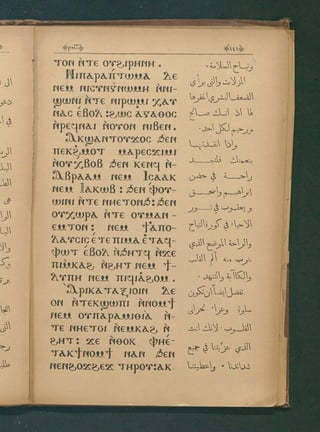 ⲧⲟⲛ ⲛ̀ⲧⲉ ⲟⲩϩⲓⲣⲏⲛⲏ .
Ⲛⲓⲡⲁⲣⲁⲡⲧⲱⲙⲁ ⲇⲉ
ⲛⲉⲙ
ϣⲱⲛⲓ ⲛ̀ⲧⲉ ⲛⲓⲣⲱⲙⲓ ⲭⲁⲩ
ⲛⲁⲥ ⲉ̀ⲃⲟⲗ : ϩⲱⲥ ⲁⲅⲁⲑⲟⲥ
ⲛ̀ⲣⲉϥⲛⲁⲓ ⲛ̀ⲟⲩⲟⲛ ⲛⲓⲃⲉⲛ .
Ⲁⲕϣⲁⲛⲧⲟⲩⲭⲟⲥ ϧⲉⲛ
ⲡⲉⲕϩ̀ⲙⲟⲧ ⲙⲁⲣⲉⲥϫⲓⲙⲓ
ⲛ̀ⲟⲩⲭ̀ⲃⲟⲃ ϧⲉⲛ ⲕⲉⲛϥ ⲛ̀
Ⲁⲃⲣⲁⲁⲙ ⲛⲉⲙ Ⲓⲥⲁⲁⲕ
ⲛⲉⲙ Ⲓⲁⲕⲱⲃ : ϧⲉⲛ ⲫⲟⲩ-
ⲱⲓⲛⲓ ⲛ̀ⲧⲉ ⲛⲏⲉⲧⲟⲛϧ : ϧⲉⲛ
ⲟⲩⲭⲱⲣⲁ ⲛ̀ⲧⲉ ⲟⲩⲙⲁⲛ-
ⲉⲙⲧⲟⲛ : ⲛⲉⲙ ϯⲁ̀ⲡⲟ-
ⲗⲁⲩⲥⲓⲥ ⲉ̀ⲧⲉ ⲡⲓⲙⲁ ⲉ̀ⲧⲁϥ-
ⲫⲱⲧ ⲉ̀ⲃⲟⲗ ⲛ̀ϧⲏⲧϥ ⲛ̀ϫⲉ
ⲡⲓⲙ̀ⲕⲁϩ ⲛ̀ϩⲏⲧ ⲛⲉⲙ ϯ-
ⲗⲩⲡⲏ ⲛⲉⲙ ⲡⲓϥⲓⲁ̀ϩⲟⲙ .
Ⲁⲣⲓⲕⲁⲧⲁⲝⲓⲟⲓⲛ ⲇⲉ
ⲟⲛ ⲛ̀ⲧⲉⲕϣⲱⲡⲓ ⲛ̀ⲛⲟⲙϯ
ⲛⲉⲙ ⲟⲩⲡⲁⲣⲁⲙⲩⲑⲓⲁ ⲛ̀-
ⲧⲉ ⲛⲏⲉⲧⲟⲓ ⲛ̀ⲉⲙⲕⲁϩ ⲛ̀
ϩⲏⲧ : ϫⲉ ⲛ̀ⲑⲟⲕ ⲫⲏⲉ̀-
ⲧⲁⲕϯⲛⲟⲙϯ ⲛⲁⲛ ϧⲉⲛ
ⲛⲉⲛϩⲟϫϩⲉϫ ⲧⲏⲣⲟⲩ : ⲁⲕ
ونياح السلامة .
الزلات والتى برأى
الضعف البشرى اغفرها
فاذ انك صالح
ورحيم لكل احد .
واذا افتقدتها
بنعمتك فلتجد
راحة فى حضن
ابراهيم واسحق
ويعقوب فى نور
الاحياء فى كورة النياح
والراحة الموضع الذى
هرب منه ألم القلب
والكآبة والتنهد .
تفضل ايضاً ان تكون
سلوة وعزاء لحزانى
القلوب . لانك انت
الذى عزيتنا فى جميع
شدائدنا . واعطيتنا